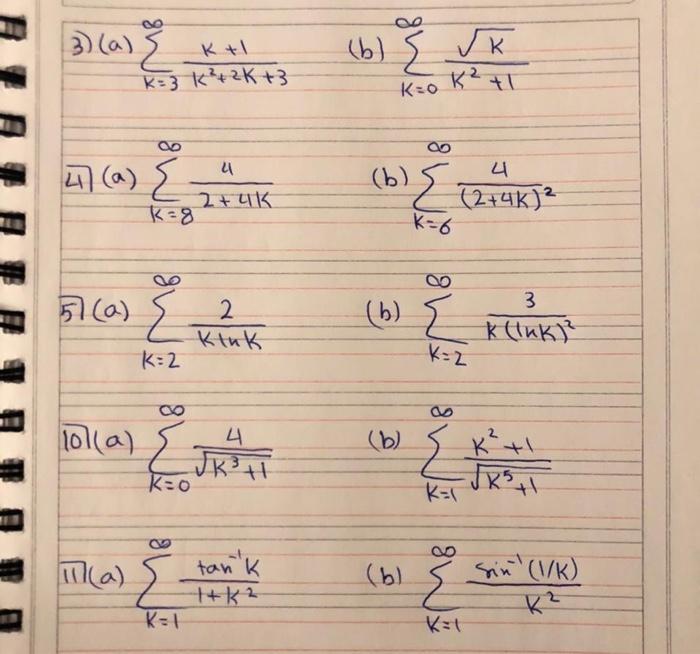 3) (a) ∞∑k=3 (k+1)/(k²+2k+3) (b) ∞∑k=0 √k/(k²+1)
4) (a) ∞∑k=8 4/(2+4k) (b) ∞∑k=6 4/(2+4k)²
5) (a) ∞∑k=2 2/(k ln k) (b) ∞∑k=2 3/(k(ln k)²)
10) (a) ∞∑k=0 4/√(k³+1) (b) ∞∑k=1 (k²+1)/√(k⁵+1)
11) (a) ∞∑k=1 tan⁻¹k/(1+k²) (b) ∞∑k=1 sin⁻¹(1/k)/k²